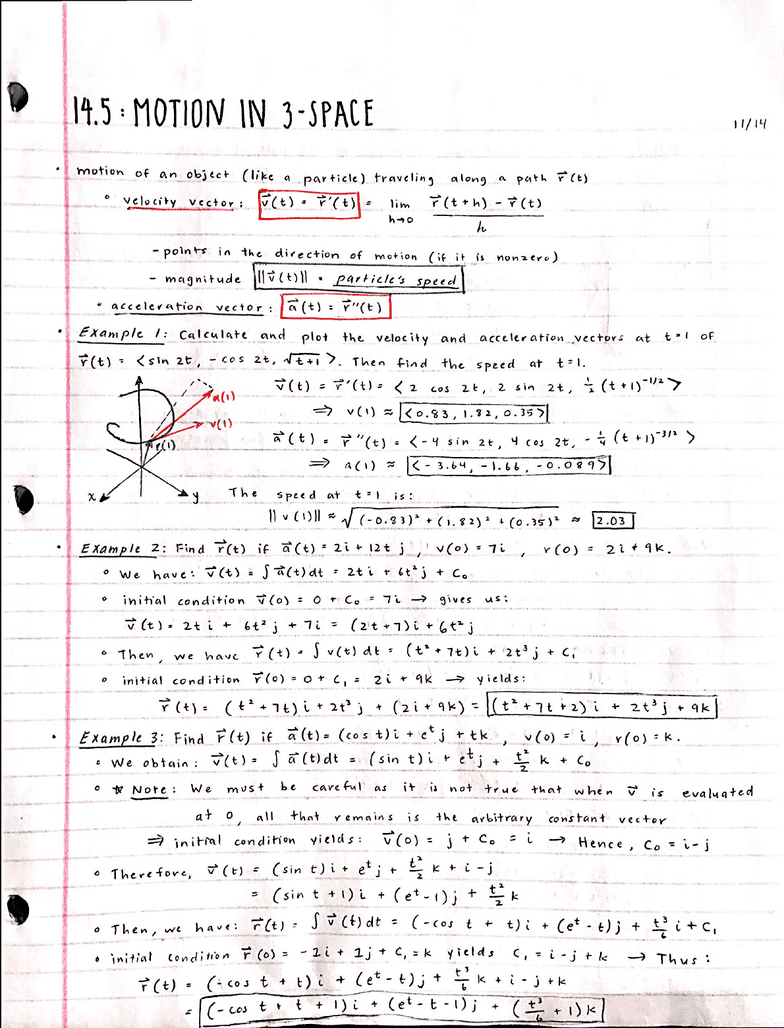 14.5: MOTION IN 3-SPACE
11/14
• motion of an object (like a particle) traveling along a path r⃗(t)
∘ velocity vector: v⃗(t) = r⃗'(t) = lim h→0 (r⃗(t+h) - r⃗(t)) / h
- points in the direction of motion (if it is nonzero)
- magnitude ||v⃗(t)|| = particle's speed
∘ acceleration vector: a⃗(t) = r⃗''(t)
• Example 1: Calculate and plot the velocity and acceleration vectors at t=1 of
r⃗(t) = <sin 2t, -cos 2t, √(t+1)>. Then find the speed at t=1.
v⃗(t) = r⃗'(t) = <2 cos 2t, 2 sin 2t, ½(t+1)^(-1/2)>
⇒ v(1) ≈ <0.83, 1.82, 0.35>
a⃗(t) = r⃗''(t) = <-4 sin 2t, 4 cos 2t, -¼(t+1)^(-3/2)>
⇒ a(1) ≈ <-3.64, -1.66, -0.089>
a(1)
v(1)
r(1)
x
y
The speed at t=1 is:
||v(1)|| ≈ √((-0.83)² + (1.82)² + (0.35)²) ≈ 2.03
• Example 2: Find r⃗(t) if a⃗(t) = 2i + 12t j, v(0) = 7i, r(0) = 2i + 9k.
∘ We have: v⃗(t) = ∫a⃗(t)dt = 2ti + 6t²j + C₀
∘ initial condition v⃗(0) = 0 + C₀ = 7i → gives us:
v⃗(t) = 2ti + 6t²j + 7i = (2t+7)i + 6t²j
∘ Then, we have r⃗(t) = ∫v(t)dt = (t²+7t)i + 2t³j + C₁
∘ initial condition r⃗(0) = 0 + C₁ = 2i + 9k → yields:
r⃗(t) = (t²+7t)i + 2t³j + (2i + 9k) = (t²+7t+2)i + 2t³j + 9k
• Example 3: Find r⃗(t) if a⃗(t) = (cos t)i + eᵗj + tk, v(0) = i, r(0) = k.
∘ We obtain: v⃗(t) = ∫a⃗(t)dt = (sin t)i + eᵗj + t²/2 k + C₀
∘ * Note: We must be careful as it is not true that when v⃗ is evaluated
at 0, all that remains is the arbitrary constant vector
⇒ initial condition yields: v⃗(0) = j + C₀ = i → Hence, C₀ = i-j
∘ Therefore, v⃗(t) = (sin t)i + eᵗj + t²/2 k + i-j
= (sin t+1)i + (eᵗ-1)j + t²/2 k
∘ Then, we have: r⃗(t) = ∫v⃗(t)dt = (-cos t + t)i + (eᵗ-t)j + t³/6 i + C₁
∘ initial condition r⃗(0) = -1i + 1j + C₁ = k yields C₁ = i-j+k → Thus:
r⃗(t) = (-cos t + t)i + (eᵗ-t)j + t³/6 k + i-j+k
= (-cos t + t + 1)i + (eᵗ-t-1)j + (t³/6 + 1)k